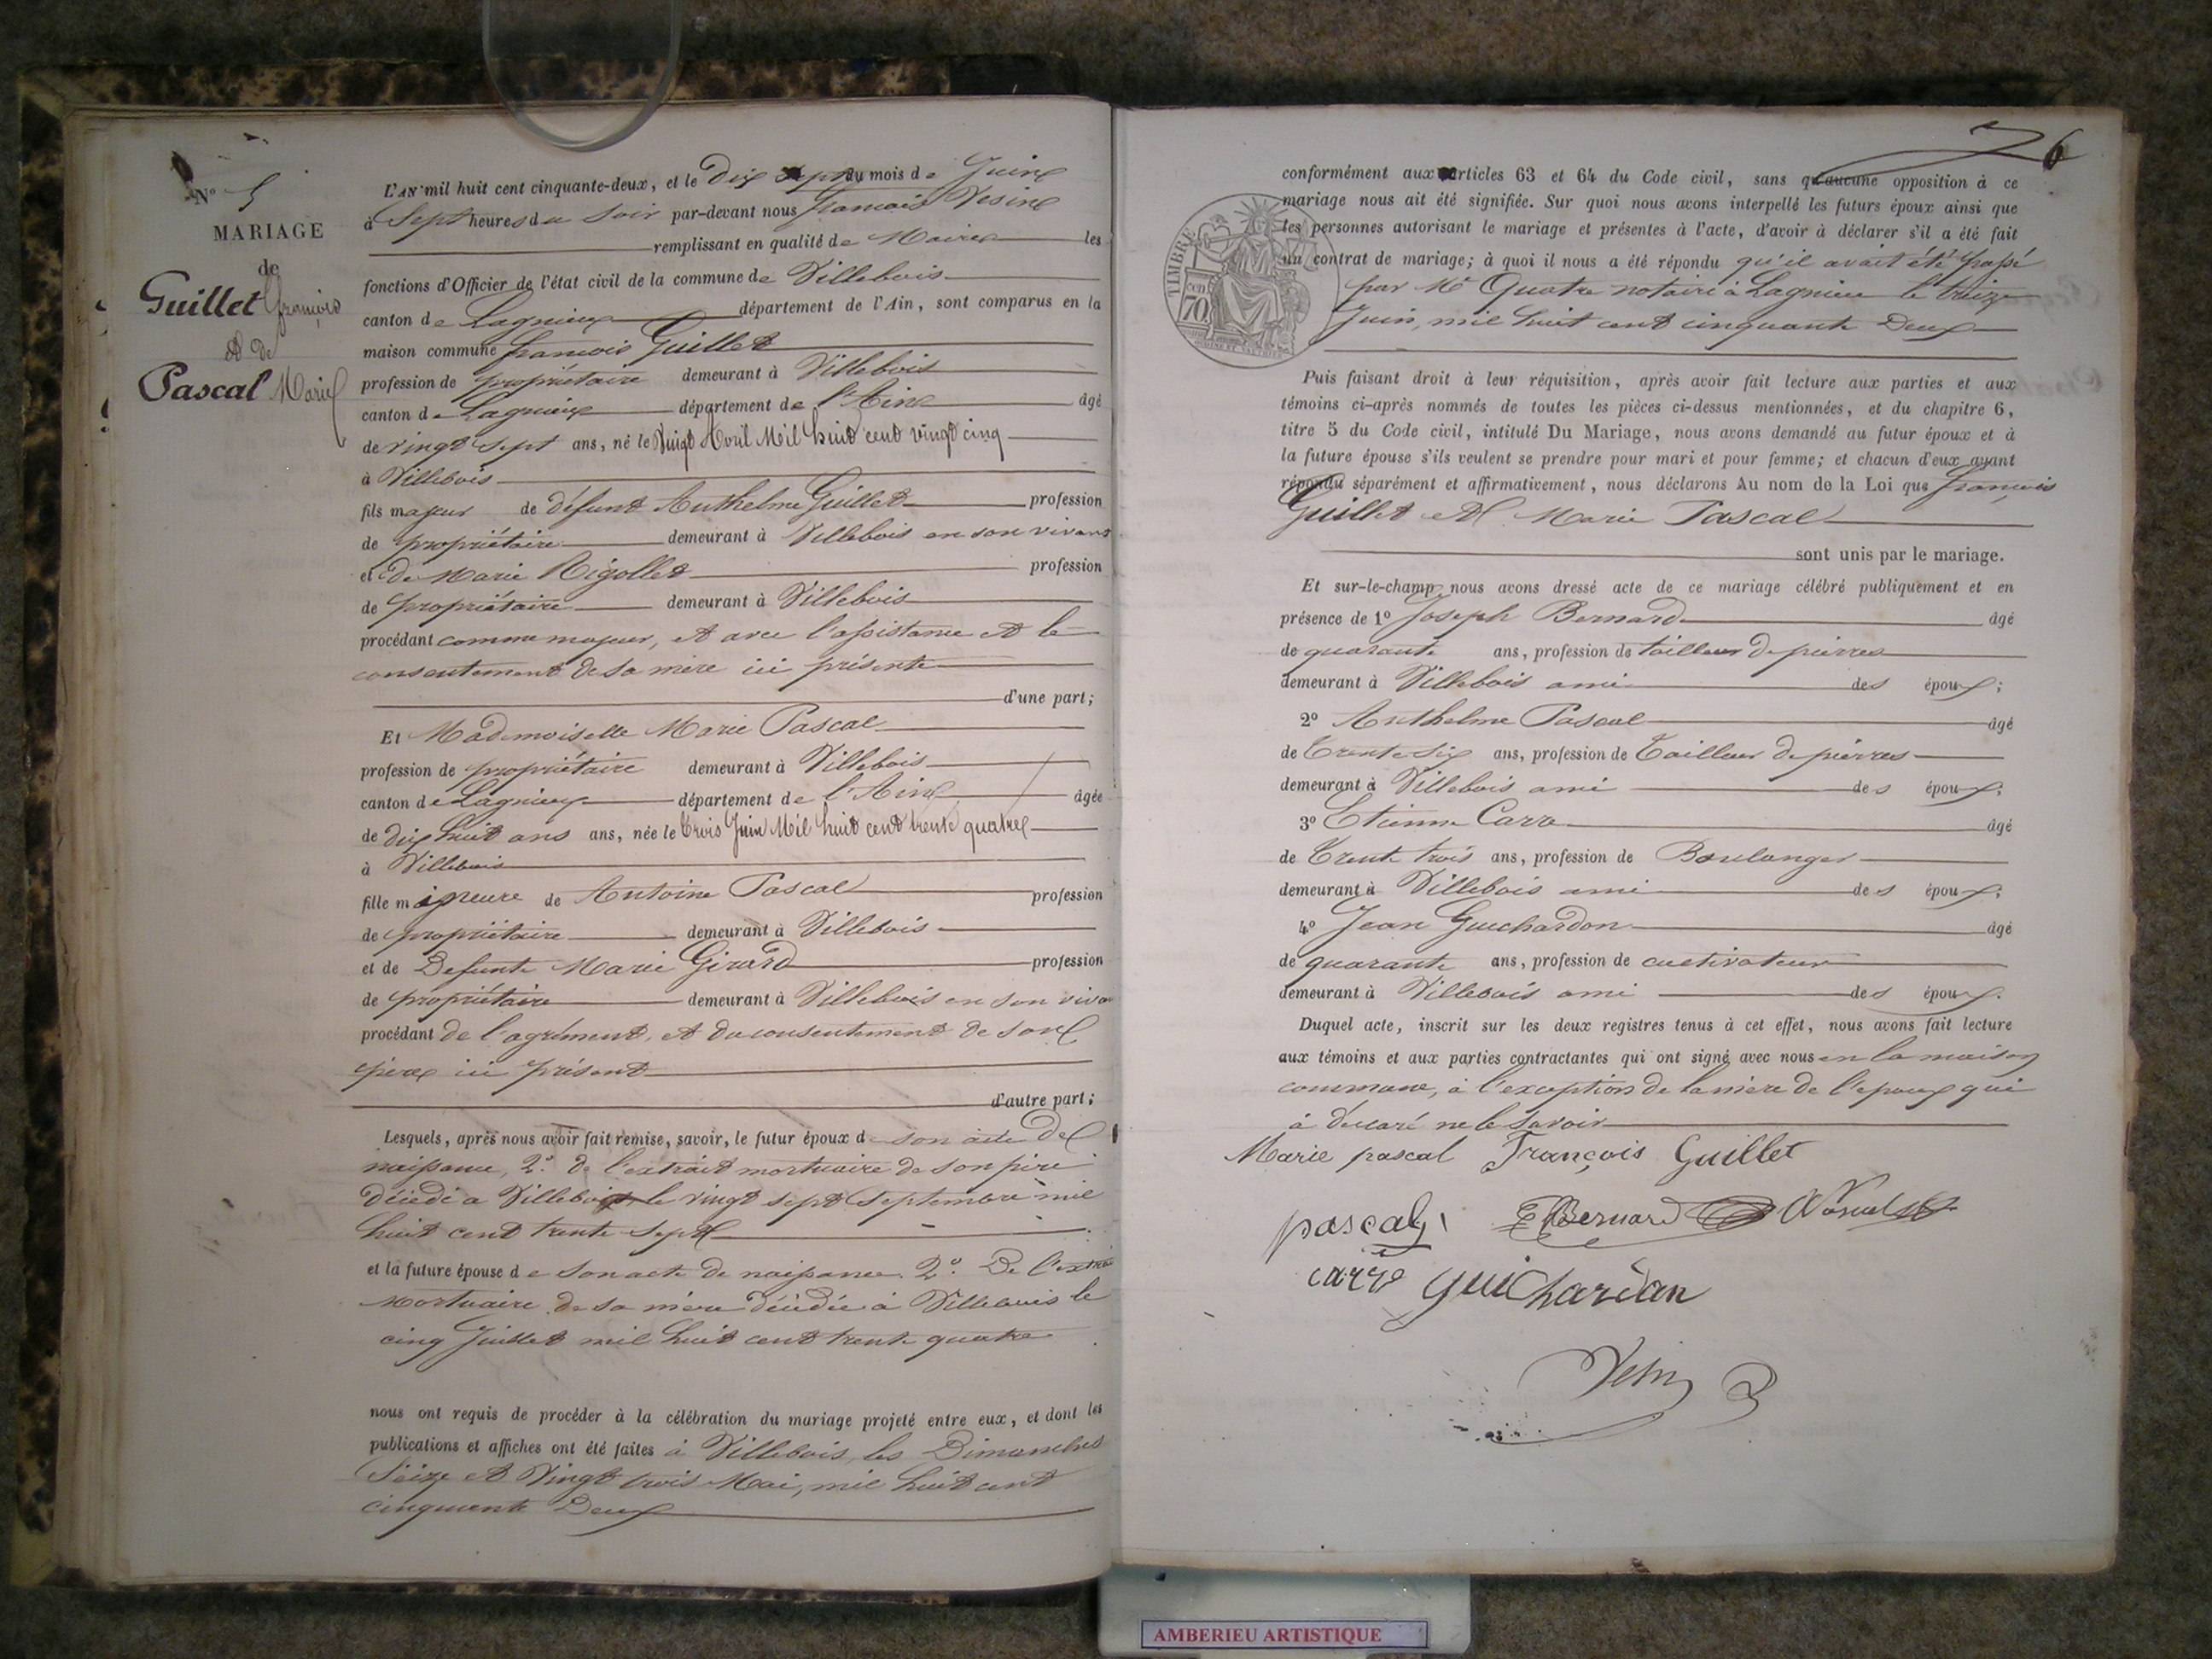 N° 5
MARIAGE
de
Guillet François
et de
Pascal Marie
L'AN mil huit cent cinquante-deux, et le Dix Sept du mois de Juin
à Sept heures du Soir par-devant nous francois Vesin
remplissant en qualité de Maire les
fonctions d'Officier de l'état civil de la commune de Villebois
canton de Lagnieux département de l'Ain, sont comparus en la
maison commune francois Guillet
profession de propriétaire demeurant à Villebois
canton de Lagnieux département de l'Ain âgé
de vingt sept ans, né le Vingt Avril Mil huit cent vingt cinq
à Villebois
fils majeur de défunt Anthelme Guillet profession
de propriétaire demeurant à Villebois en son vivant
et de Marie Rigollet profession
de propriétaire demeurant à Villebois
procédant comme majeur, et avec l'assistance et le
consentement de sa mère ici présente
d'une part;
Et Mademoiselle Marie Pascal
profession de propriétaire demeurant à Villebois
canton de Lagnieux département de l'Ain âgée
de dix huit ans ans, née le trois Juin Mil huit cent trente quatre
à Villebois
fille mineure de Antoine Pascal profession
de propriétaire demeurant à Villebois
et de Defunte Marie Girard profession
de propriétaire demeurant à Villebois en son viva
procédant de l'agrément, et du consentement de son
père ici présent
d'autre part;
Lesquels, après nous avoir fait remise, savoir, le futur époux de son acte de
naissance, 2° de l'extrait mortuaire de son père
décédé a Villebois le vingt sept Septembre mil
huit cent trente sept
et la future épouse de son acte de naissance. 2° De l'extrai
mortuaire de sa mère décédée à Villebois le
cinq Juillet mil huit cent trente quatre
nous ont requis de procéder à la célébration du mariage projeté entre eux, et dont les
publications et affiches ont été faites à Villebois, les Dimanches
Seize et Vingt trois Mai, mil huit cent
cinquante Deux
6
conformément aux articles 63 et 64 du Code civil, sans qu'aucune opposition à ce
mariage nous ait été signifiée. Sur quoi nous avons interpellé les futurs époux ainsi que
les personnes autorisant le mariage et présentes à l'acte, d'avoir à déclarer s'il a été fait
un contrat de mariage; à quoi il nous a été répondu qu'il avait été passé
par Me Quatre notaire à Lagnieu le treize
Juin, mil huit cent cinquante Deux
TIMBRE
cen
70
Puis faisant droit à leur réquisition, après avoir fait lecture aux parties et aux
témoins ci-après nommés de toutes les pièces ci-dessus mentionnées, et du chapitre 6,
titre 5 du Code civil, intitulé Du Mariage, nous avons demandé au futur époux et à
la future épouse s'ils veulent se prendre pour mari et pour femme; et chacun d'eux ayant
répondu séparément et affirmativement, nous déclarons Au nom de la Loi que françois
Guillet et Marie Pascal
sont unis par le mariage.
Et sur-le-champ nous avons dressé acte de ce mariage célébré publiquement et en
présence de 1° Joseph Bernard âgé
de quarante ans, profession de tailleur de pierres
demeurant à Villebois ami des époux;
2° Anthelme Pascal âgé
de Trente Six ans, profession de Tailleur de pierres
demeurant à Villebois ami des époux;
3° Etienne Carre âgé
de Trente trois ans, profession de Boulanger
demeurant à Villebois ami des époux;
4° Jean Guichardon âgé
de quarante ans, profession de cultivateur
demeurant à Villebois ami des époux.
Duquel acte, inscrit sur les deux registres tenus à cet effet, nous avons fait lecture
aux témoins et aux parties contractantes qui ont signé avec nous en la maison
commune, à l'exception de la mère de l'époux qui
à déclaré ne le savoir
Marie pascal François Guillet
pascal Bernard
carre guichardan
Vesin
AMBERIEU ARTISTIQUE